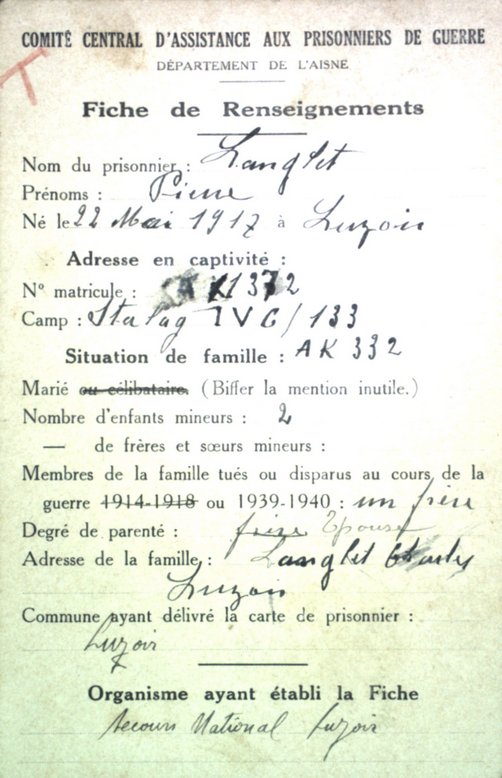 COMITÉ CENTRAL D'ASSISTANCE AUX PRISONNIERS DE GUERRE
DÉPARTEMENT DE L'AISNE
Fiche de Renseignements
Nom du prisonnier : Langlet
Prénoms : Pierre
Né le 22 Mai 1917 à Luzoir
Adresse en captivité :
N° matricule : A K 1372
Camp : Stalag IV G/133
Situation de famille : AK 332
Marié ou célibataire. (Biffer la mention inutile.)
Nombre d'enfants mineurs : 2
— de frères et sœurs mineurs :
Membres de la famille tués ou disparus au cours de la
guerre 1914-1918 ou 1939-1940 : un frère
Degré de parenté : frère Epouse
Adresse de la famille : Langlet Charles
Luzoir
Commune ayant délivré la carte de prisonnier :
Luzoir
Organisme ayant établi la Fiche
Secours National Luzoir